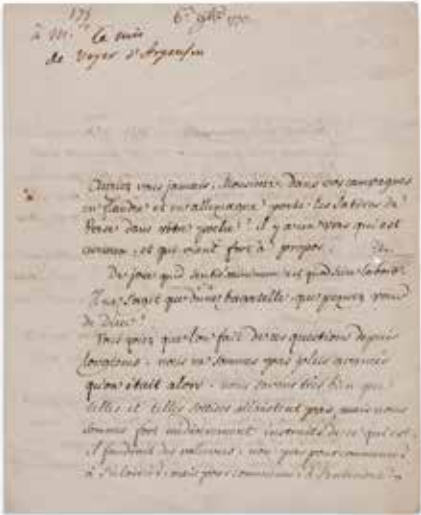 175 6e. 9bre 1770
à M. le mis
de Voyer d'Argenson
Auriez vous jamais, Monsieur, dans vos campagnes
en flandre et en allemagne porté les Satires de
Perse dans votre poche? il y a un vers qui est
curieux, et qui vient fort à propos.
De jove quid sentis minimum est quod scire laboro.
Il ne s'agit que d'une bagatelle que pensez vous
de Dieu?
Vous voyez que l'on fait de ces questions depuis
longtems. nous ne sommes pas plus avancés
qu'on était alors. nous savons très bien que
telles et telles sottises n'existent pas, mais nous
sommes fort médiocrement instruits de ce qui est.
il faudrait des volumes, non pas pour commencer
à s'éclaircir, mais pour commencer à s'entendre.